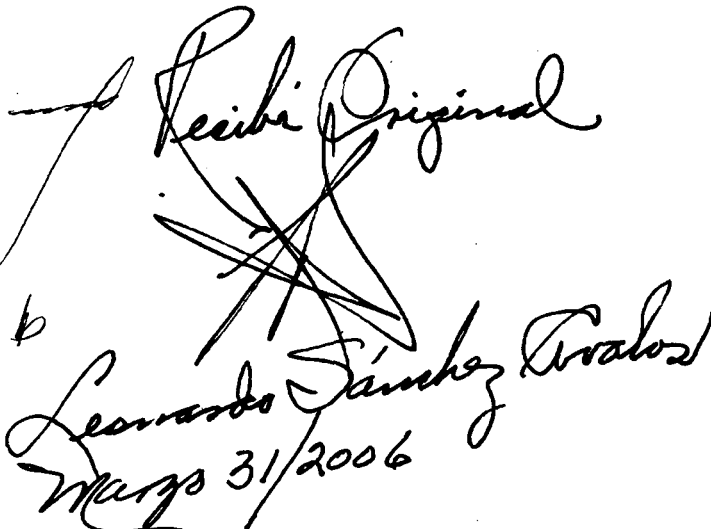 Recibí Original
Leonardo Sánchez Avalos
Marzo 31/2006